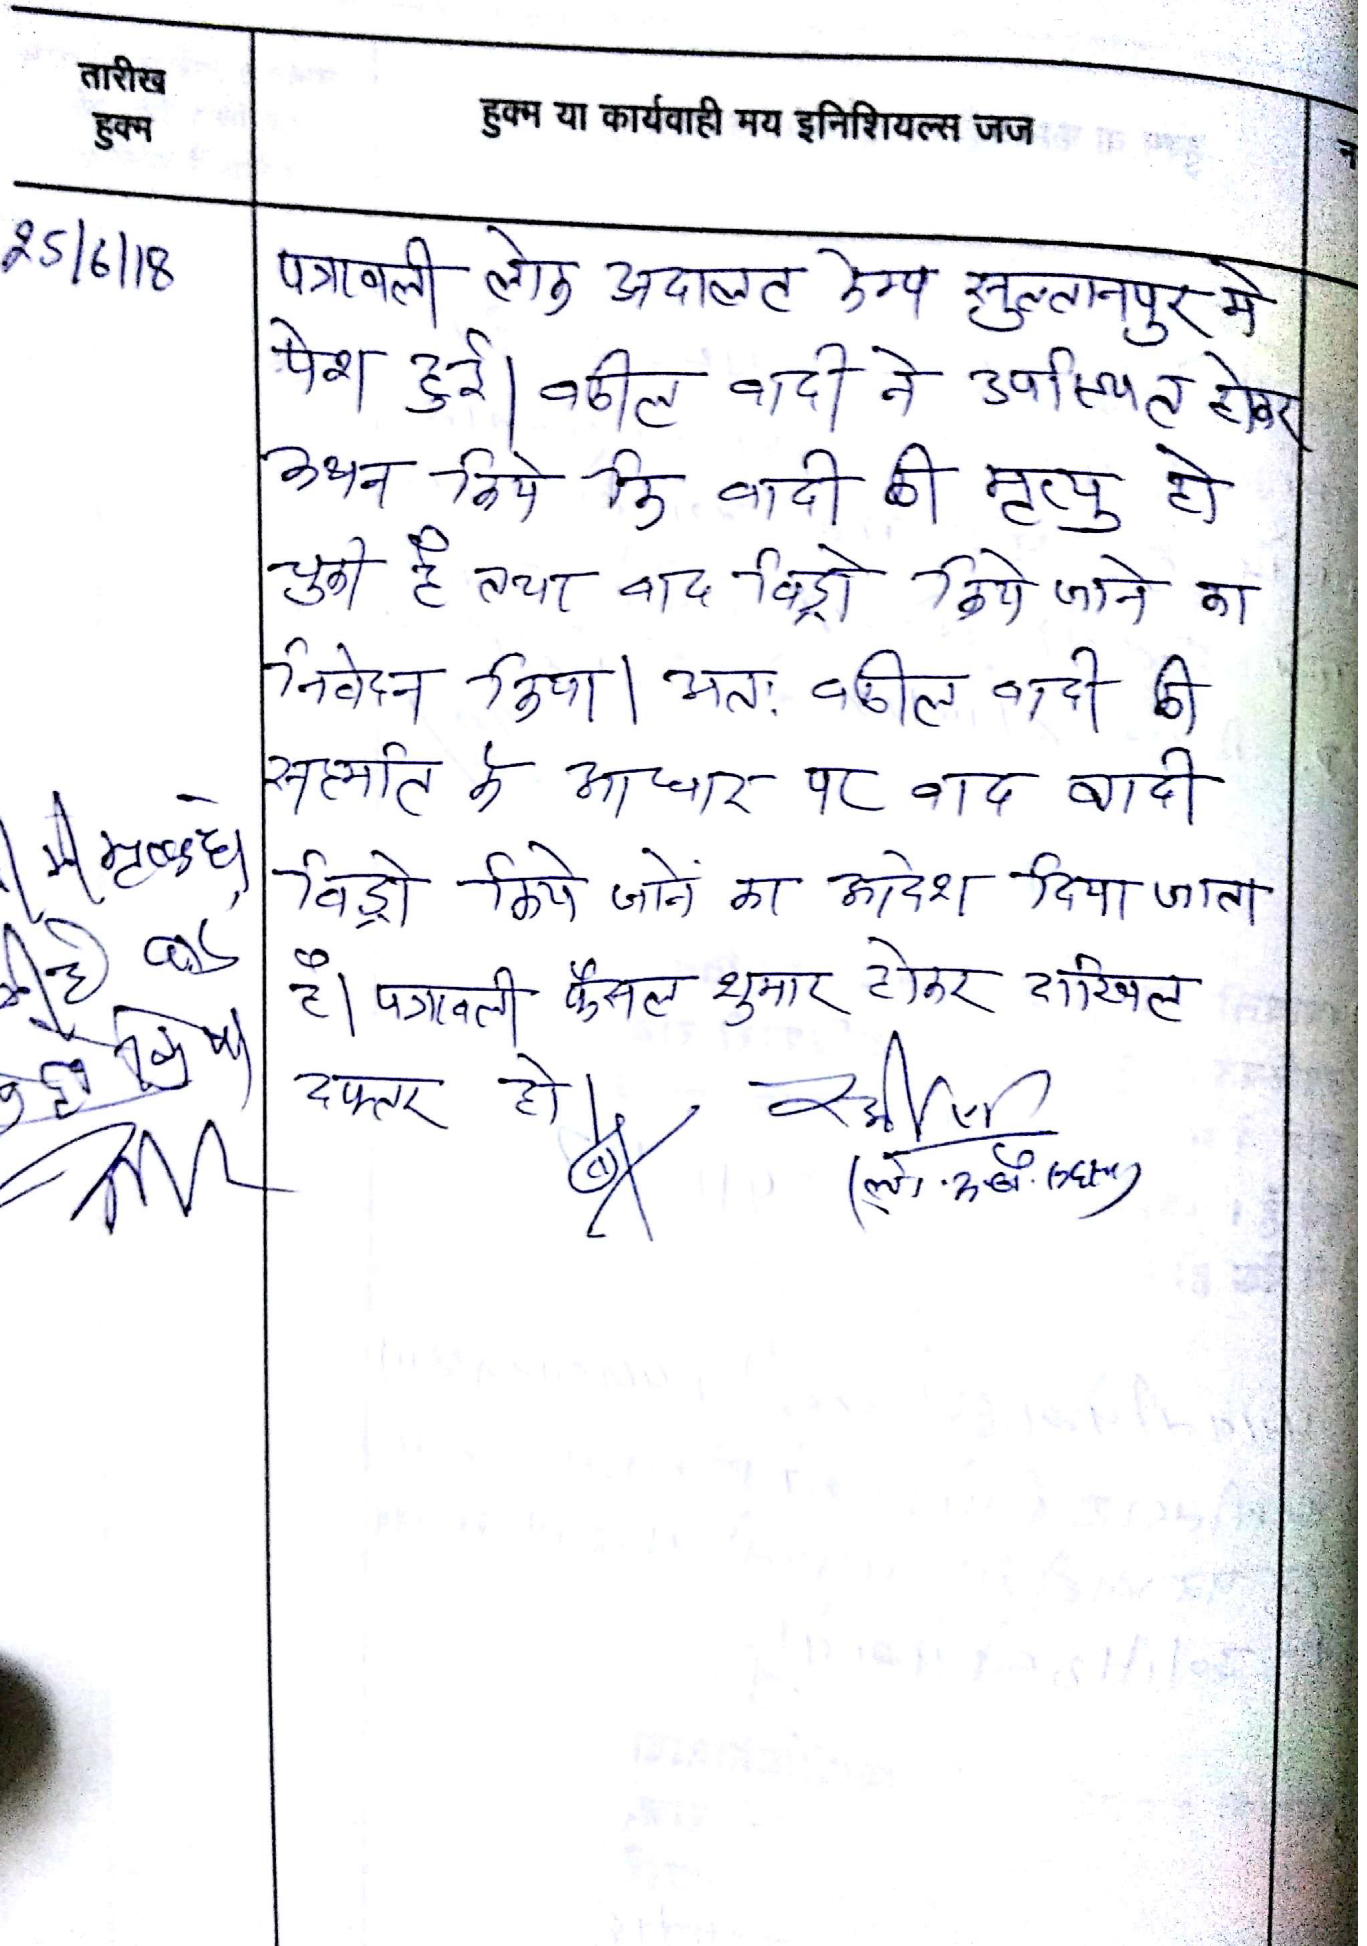 तारीख
हुक्म
हुक्म या कार्यवाही मय इनिशियल्स जज
25/6/18
पत्रावली लोक अदालत केम्प सुल्तानपुर मे
पेश हुई। वकील वादी ने उपस्थित होकर
कथन किये कि वादी की मृत्यु हो
चुकी है तथा वाद विड्रो किये जाने का
निवेदन किया। अतः वकील वादी की
सहमति के आधार पर वाद वादी
विड्रो किये जाने का आदेश दिया जाता
है। पत्रावली फैसल शुमार होकर दाखिल
दफ्तर हो।